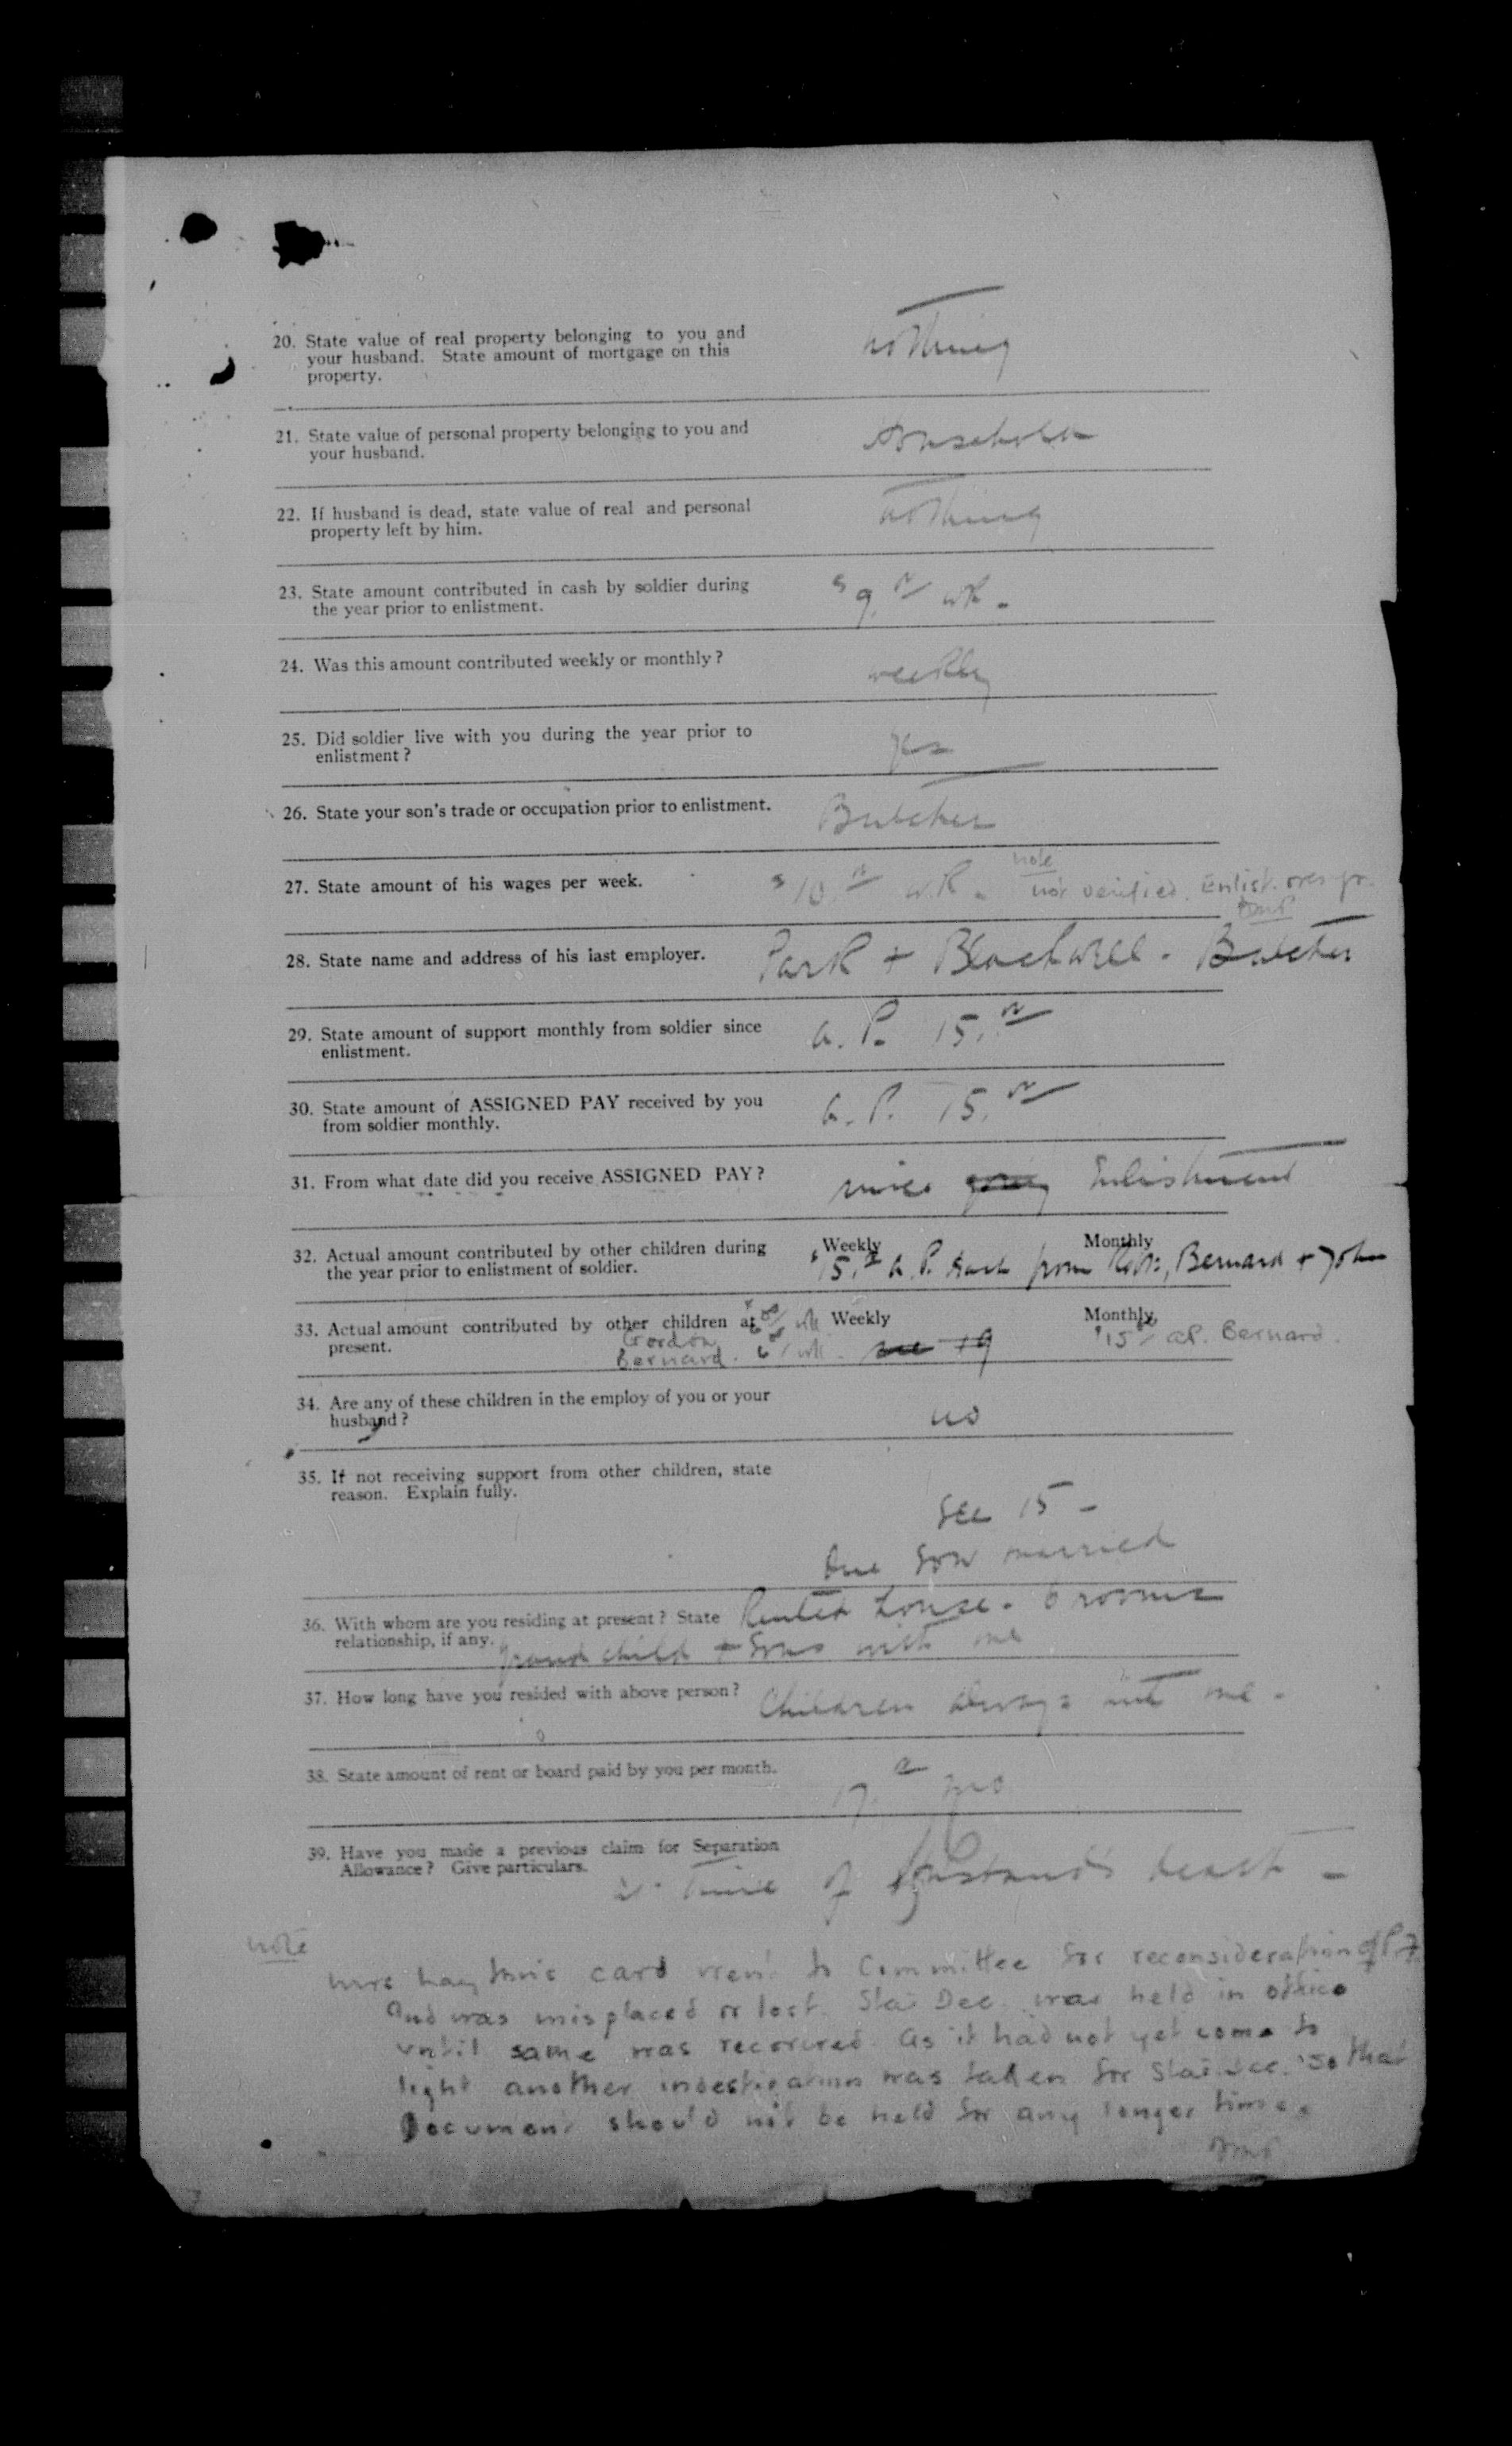 20. State value of real property belonging to you and
your husband. State amount of mortgage on this
property.
nothing
21. State value of personal property belonging to you and
your husband.
Household
22. If husband is dead, state value of real and personal
property left by him.
nothing
23. State amount contributed in cash by soldier during
the year prior to enlistment.
$9. wk.
24. Was this amount contributed weekly or monthly?
weekly
25. Did soldier live with you during the year prior to
enlistment?
yes
26. State your son's trade or occupation prior to enlistment.
Butcher
27. State amount of his wages per week.
$10. wk.
note
not verified. Enlist. over yr.
28. State name and address of his last employer.
Park + Blackwell. Butcher
29. State amount of support monthly from soldier since
enlistment.
a. P. 15.
30. State amount of ASSIGNED PAY received by you
from soldier monthly.
a. P. 15.
31. From what date did you receive ASSIGNED PAY?
since Enlistment
32. Actual amount contributed by other children during
the year prior to enlistment of soldier.
Weekly Monthly
$15. a. P. each from Robt, Bernard + John
33. Actual amount contributed by other children at
present.
Weekly Monthly
Gordon wk
Bernard. 6 wk.
see 19
$15 a.P. Bernard.
34. Are any of these children in the employ of you or your
husband?
no
35. If not receiving support from other children, state
reason. Explain fully.
See 15 -
One son married
36. With whom are you residing at present? State
relationship, if any.
Rented house. 6 rooms
grand child + sons with me
37. How long have you resided with above person?
Children always with me.
38. State amount of rent or board paid by you per month.
17. mo.
39. Have you made a previous claim for Separation
Allowance? Give particulars.
time of husband's death -
note
Mrs card went to Committee for reconsideration of P.F.
and was misplaced or lost. Stat Dec. was held in office
until same was recovered. As it had not yet come to
light another investigation was taken for Stat. Dec. so that
Document should not be held for any longer time.